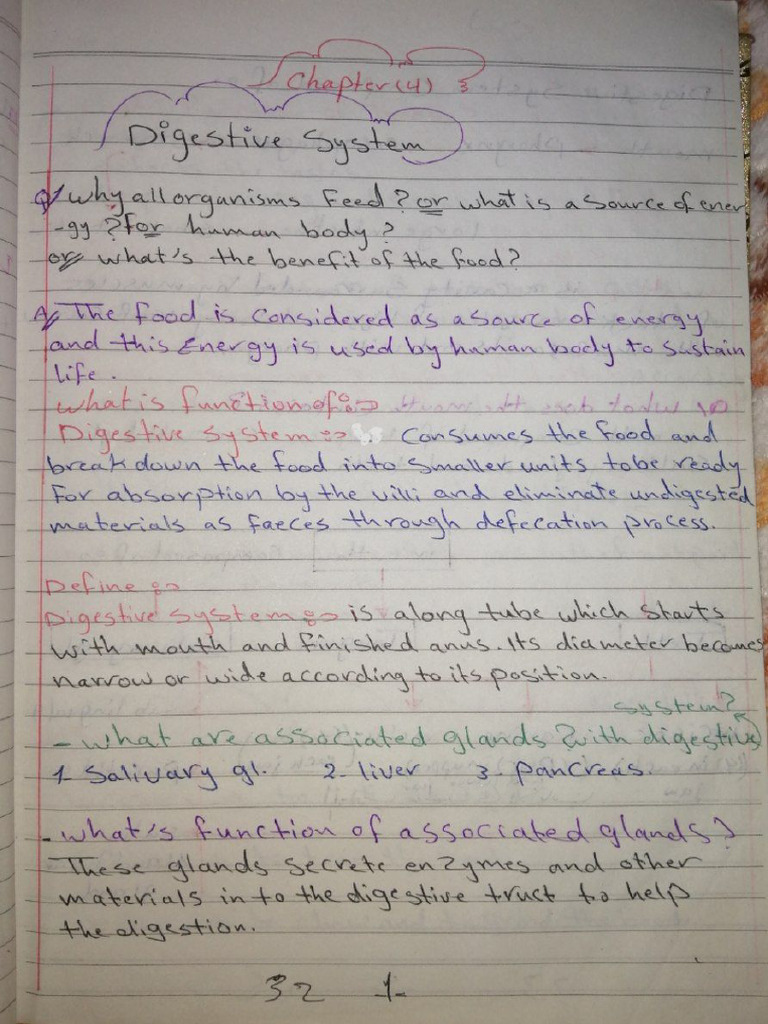 Chapter (4)
Digestive System
Q/ why all organisms Feed? or what is a source of ener
-gy? for human body?
or what's the benefit of the food?
A/ The food is considered as a source of energy
and this Energy is used by human body to sustain
life.
what is function of :->
Digestive system :-> Consumes the food and
break down the food into smaller units to be ready
For absorption by the villi and eliminate undigested
materials as faeces through defecation process.
Define :->
Digestive system :-> is along tube which starts
with mouth and finished anus. Its diameter becomes
narrow or wide according to its position.
system?
- what are associated glands with digestive
1. Salivary gl. 2- liver 3- Pancreas.
- what's function of associated glands?
These glands secrete enzymes and other
materials in to the digestive truct to help
the digestion.
32 1-